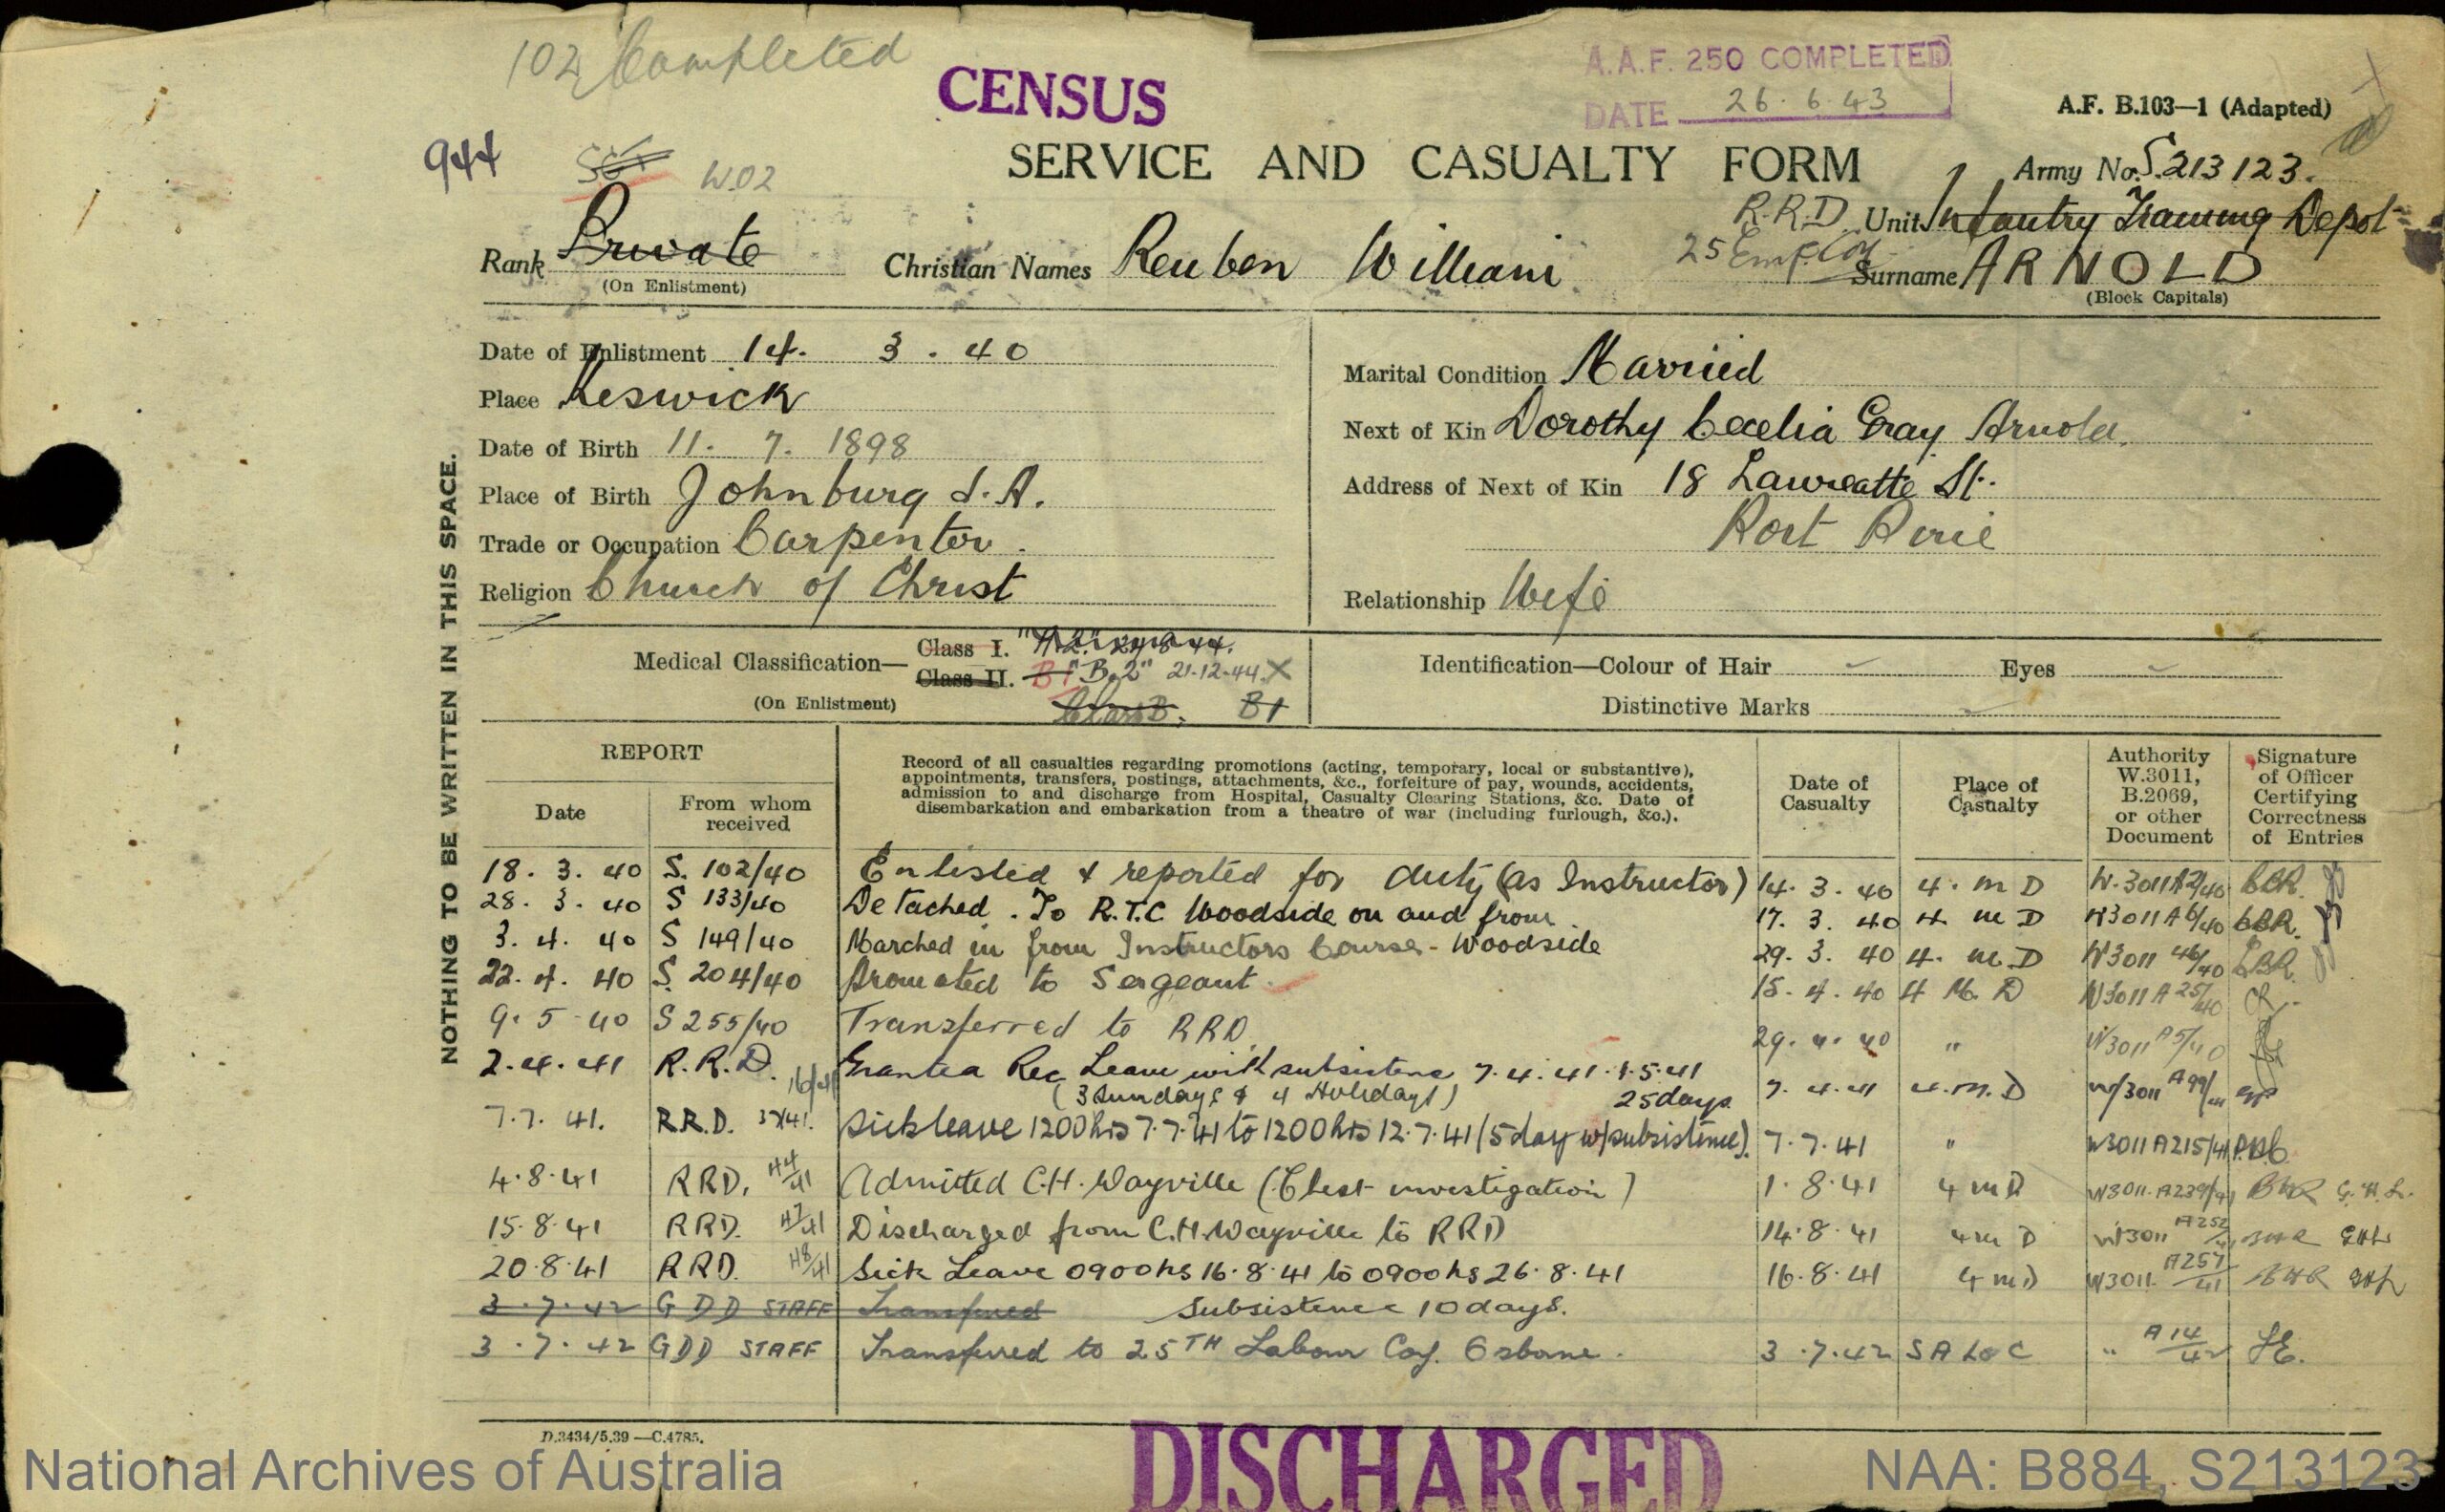 102 Completed
CENSUS
A.A.F. 250 COMPLETED
DATE 26.6.43
A.F. B.103—1 (Adapted)
944
W.O2
SERVICE AND CASUALTY FORM
Army No. S.213123.
R.R.D. Unit Infantry Training Depot
25 Emp. Coy
Rank Private
(On Enlistment)
Christian Names Reuben William
Surname ARNOLD
(Block Capitals)
Date of Enlistment 14. 3. 40
Place Keswick
Date of Birth 11. 7. 1898
Place of Birth Johnburg S.A.
Trade or Occupation Carpenter.
Religion Church of Christ
Marital Condition Married
Next of Kin Dorothy Cecelia Gray Arnold.
Address of Next of Kin 18 Lawreatte St.
Port Pirie
Relationship Wife
Medical Classification—
(On Enlistment)
Class I.
Class II. B1 "B.2" 21-12-44 X
Class B. B1
Identification—Colour of Hair
Eyes
Distinctive Marks
NOTHING TO BE WRITTEN IN THIS SPACE.
REPORT
Date
From whom received
Record of all casualties regarding promotions (acting, temporary, local or substantive),
appointments, transfers, postings, attachments, &c., forfeiture of pay, wounds, accidents,
admission to and discharge from Hospital, Casualty Clearing Stations, &c. Date of
disembarkation and embarkation from a theatre of war (including furlough, &c.).
Date of Casualty
Place of Casualty
Authority W.3011, B.2069, or other Document
Signature of Officer Certifying Correctness of Entries
18. 3. 40 S. 102/40 Enlisted & reported for duty (as Instructor) 14. 3. 40 4. M D W.3011 A2/40
28. 3. 40 S 133/40 Detached. To R.T.C Woodside on and from 17. 3. 40 4 M D W3011 A6/40
3. 4. 40 S 149/40 Marched in from Instructors Course - Woodside 29. 3. 40 4. M. D W3011 46/40
22. 4. 40 S. 204/40 Promoted to Sergeant 15. 4. 40 4 M. D W3011 A 25/40
9. 5 40 S 255/40 Transferred to RRD. 29. 4. 40 " W3011 A5/40
2.4.41 R.R.D. 16/41 Granted Rec Leave with subsistence 7.4.41. 1.5.41 7.4.41 4.M.D W/3011 A99/41
(3 Sundays & 4 Holidays) 25 days
7.7.41. R.R.D. 37/41. Sick leave 1200 hrs 7.7.41 to 1200 hrs 12.7.41 (5 day w/subsistence). 7.7.41 " W3011 A215/41
4.8.41 RRD. 44/41 Admitted C.H. Wayville (Chest investigation) 1.8.41 4 M D W3011 A239/41 G.H.L.
15.8.41 RRD. 47/41 Discharged from C.H. Wayville to RRD 14.8.41 4 M D W3011 A252/41 GHL
20.8.41 RRD. 48/41 Sick Leave 0900 hs 16.8.41 to 0900 hs 26.8.41 16.8.41 4 M D W3011 A257/41 GHL
3.7.42 GDD STAFF Transferred Subsistence 10 days.
3.7.42 GDD STAFF Transferred to 25TH Labour Coy. Osborne. 3.7.42 S A L of C " A 14/42
D.3434/5.39—C.4785.
DISCHARGED
National Archives of Australia
NAA: B884, S213123